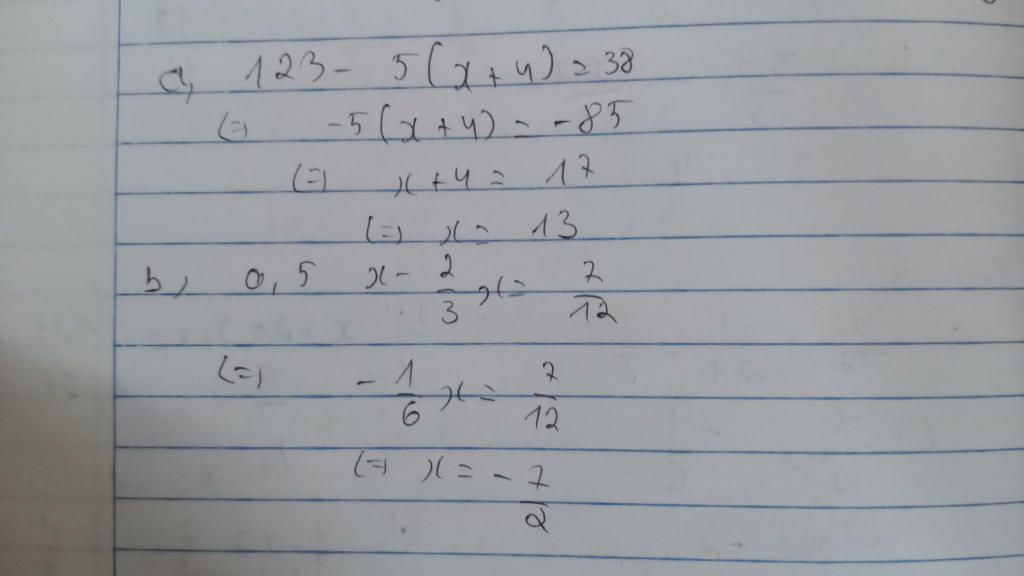 a, 123 - 5(x+4) = 38
(=) -5(x+4) = -85
(=) x+4 = 17
(=) x = 13
b, 0,5 x - 2/3 x = 7/12
(=) -1/6 x = 7/12
(=) x = -7/2